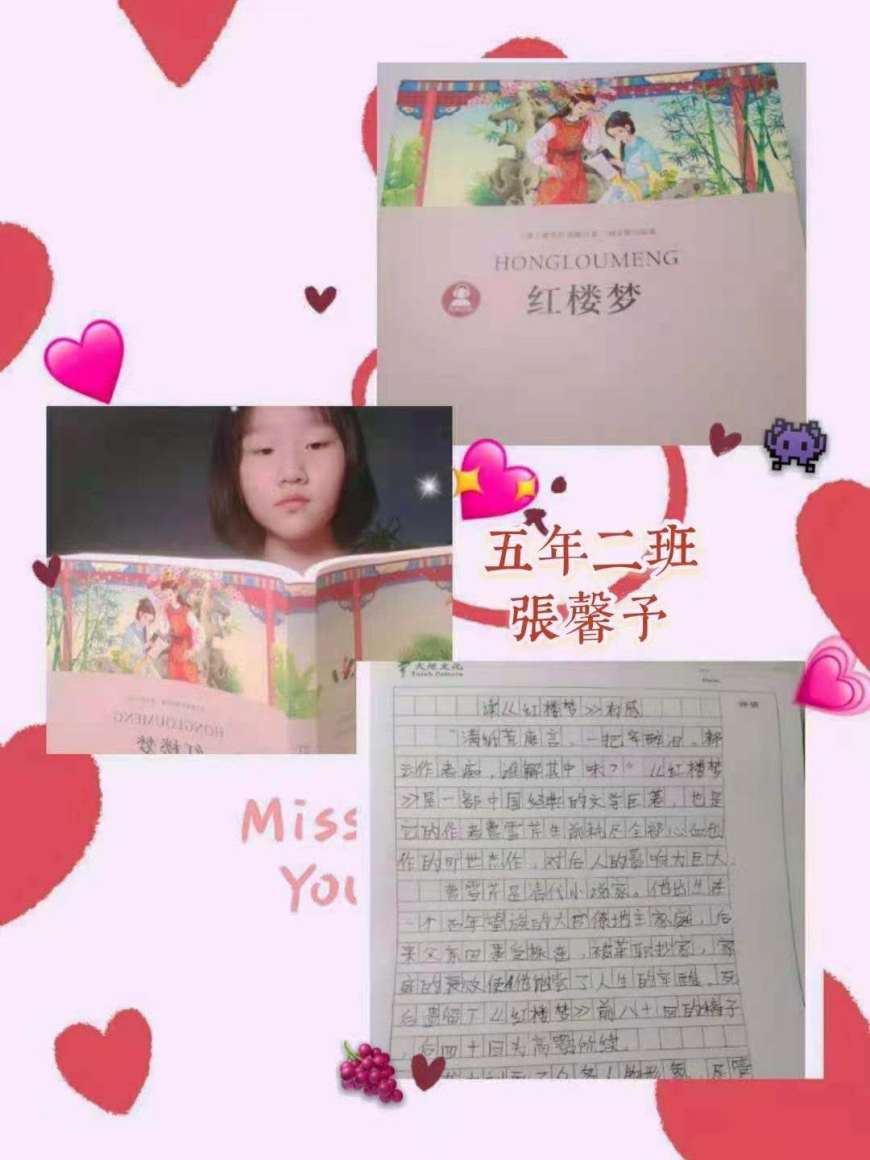 HONGLOUMENG
红楼梦
五年二班
張馨予
HONGLOUMENG
红楼梦
读《红楼梦》有感
"满纸荒唐言,一把辛酸泪。都
云作者痴,谁解其中味?"《红楼梦
》是一部中国经典的文学巨著,也是
它的作者曹雪芹生前耗尽全部心血创
作的旷世杰作,对后人的影响力巨大。
曹雪芹是清代小说家。他出生在
一个百年望族的大官僚地主家庭,后
来父亲因罪受株连,被革职抄家,家
庭的衰败使他饱尝了人生的辛酸。死
后遗留了《红楼梦》前八十回的稿子
,后四十回为高鹗所续。
Miss
You